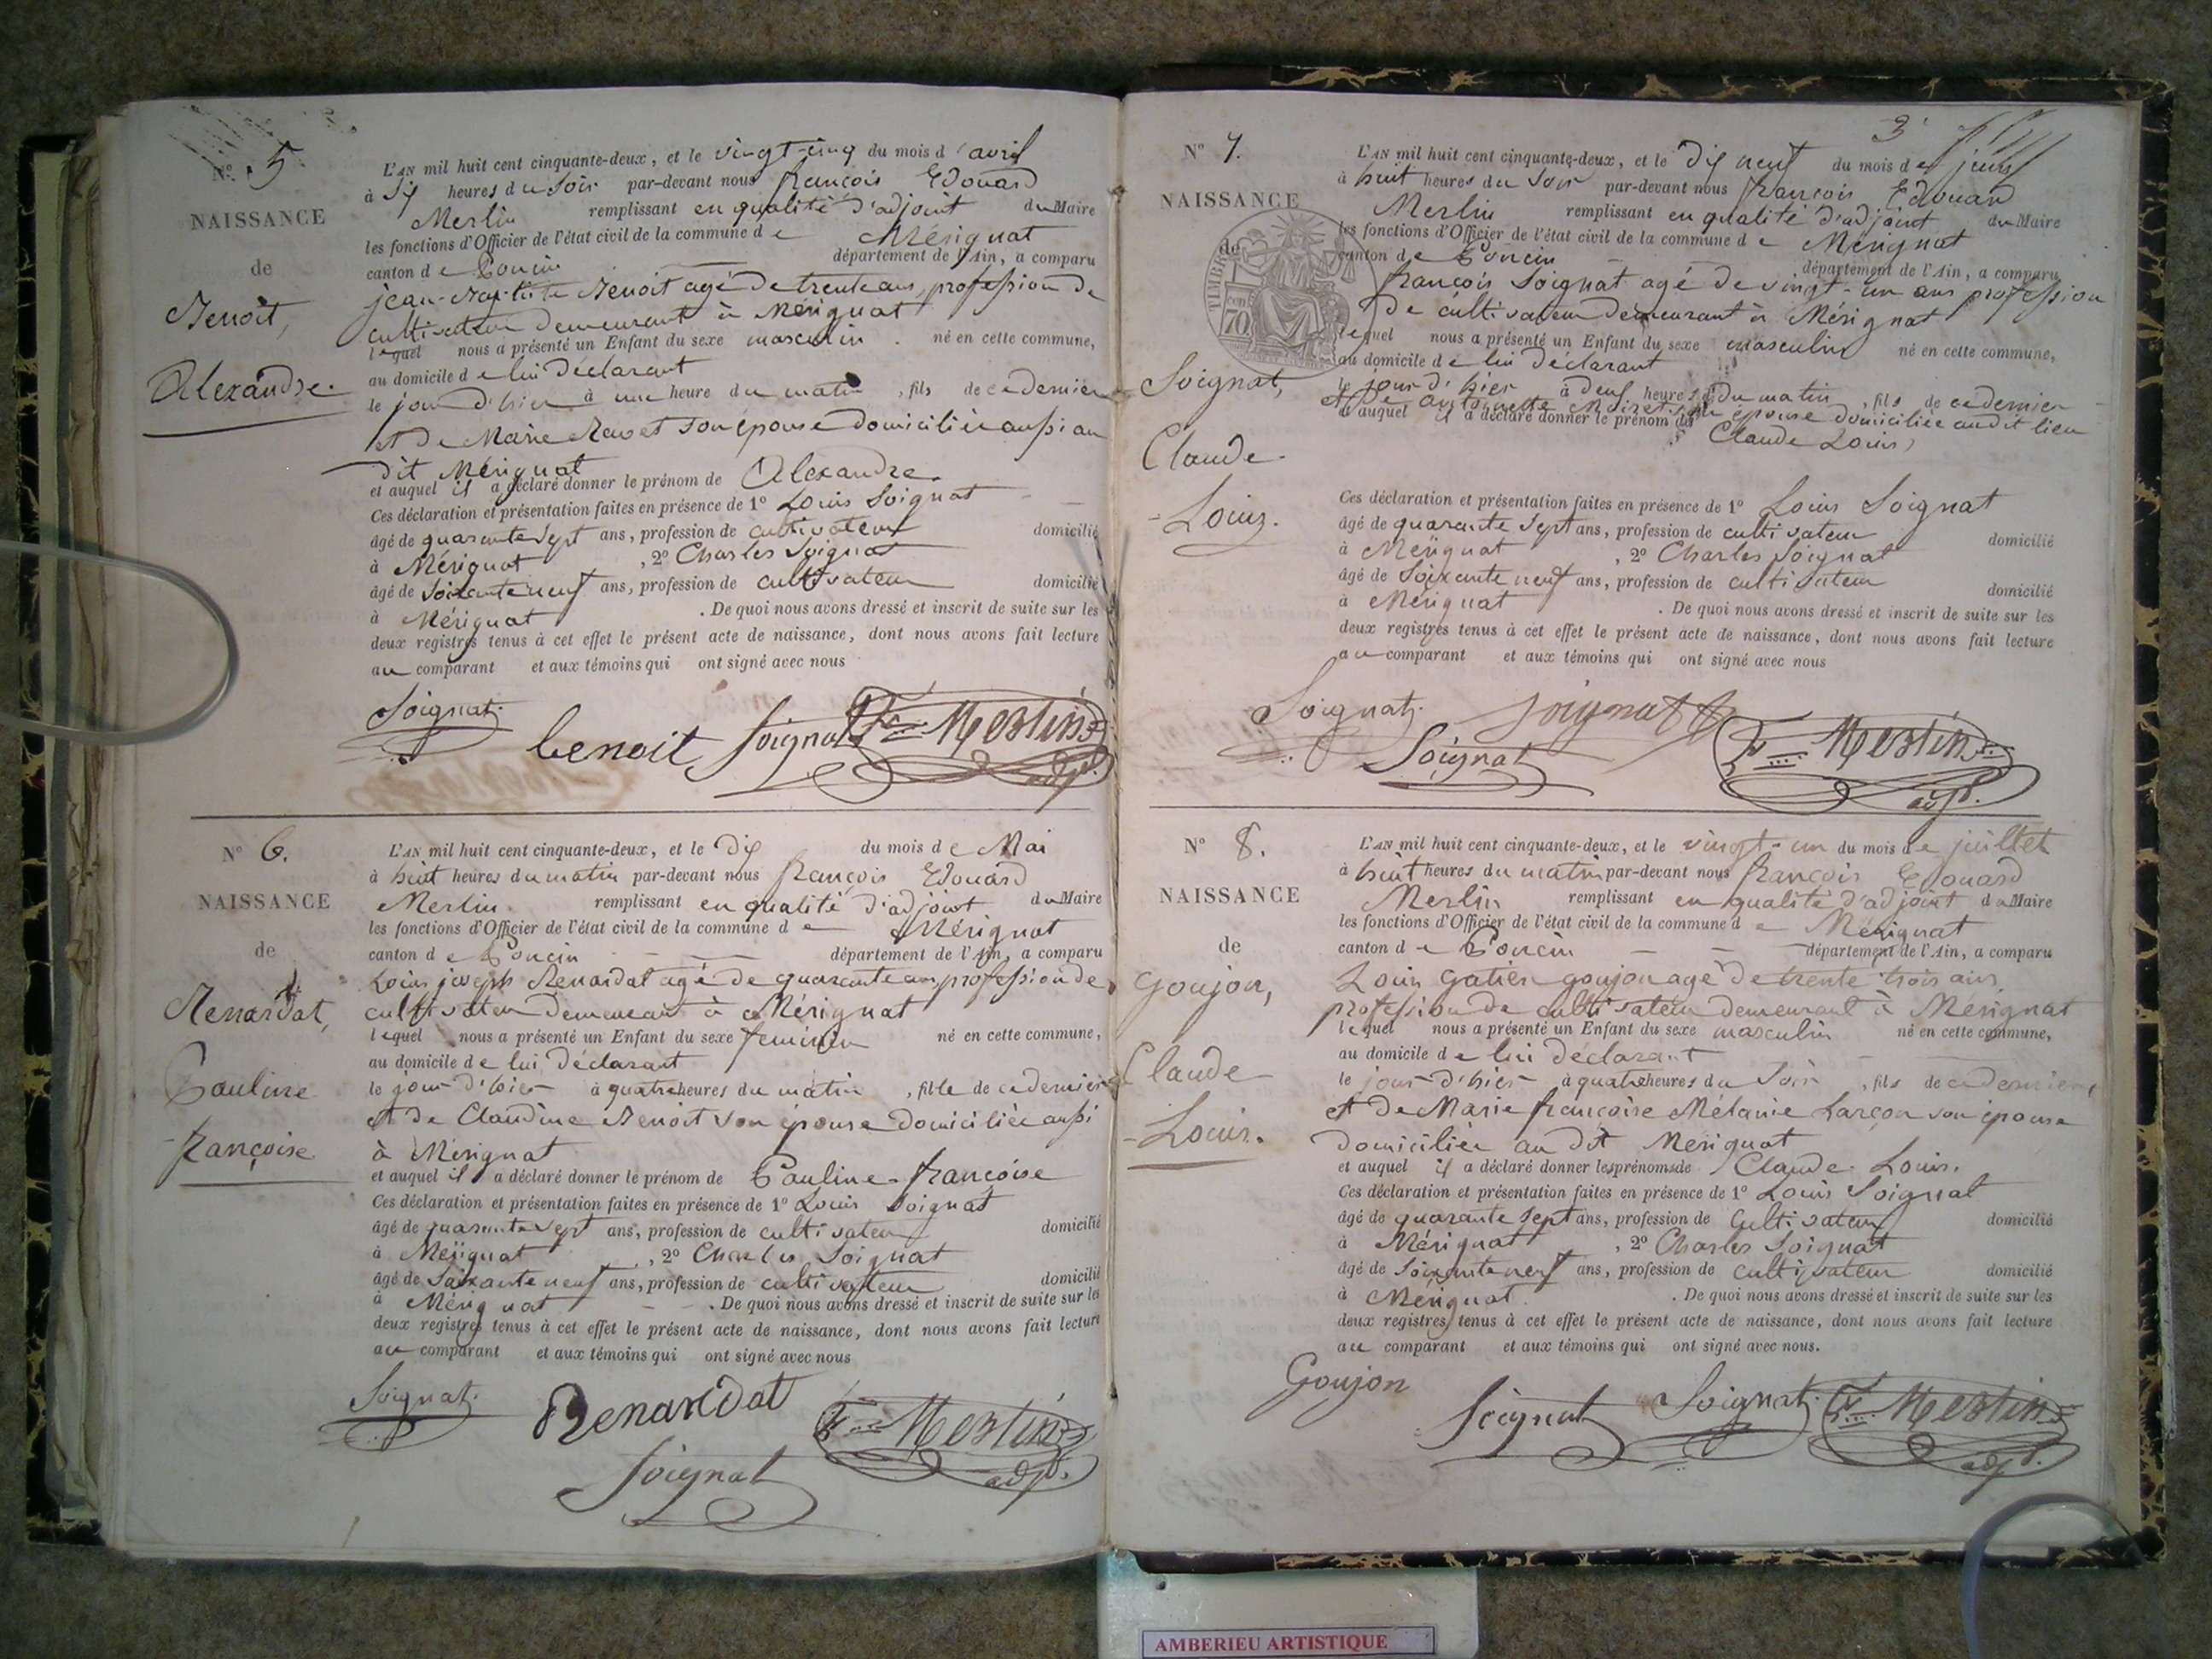 N° 5.
NAISSANCE
de
Benoit,
Alexandre.
L'AN mil huit cent cinquante-deux, et le vingt-cinq du mois d'avril
à six heures du soir par-devant nous françois Edouard
Merlin remplissant en qualité d'adjoint du Maire
les fonctions d'Officier de l'état civil de la commune de Mérignat
canton de Poncin département de l'Ain, a comparu
jean-Baptiste Benoit agé de trente ans, profession de
cultivateur demeurant à Mérignat
lequel nous a présenté un Enfant du sexe masculin . né en cette commune,
au domicile de lui déclarant
le jour d'hier à une heure du matin, fils de ce dernier
et de Marie Ravet son épouse domiciliée aussi au
dit Mérignat
et auquel il a déclaré donner le prénom de Alexandre.
Ces déclaration et présentation faites en présence de 1° Louis Soignat
âgé de quarante sept ans, profession de cultivateur domicilié
à Mérignat, 2° Charles Soignat
âgé de soixante neuf ans, profession de cultivateur domicilié
à Mérignat . De quoi nous avons dressé et inscrit de suite sur les
deux registres tenus à cet effet le présent acte de naissance, dont nous avons fait lecture
au comparant et aux témoins qui ont signé avec nous
Soignat. benoit Soignat Merlin
adjt.
N° 6.
NAISSANCE
de
Renardat,
Pauline
françoise
L'AN mil huit cent cinquante-deux, et le dix du mois de Mai
à huit heures du matin par-devant nous françois Edouard
Merlin remplissant en qualité d'adjoint du Maire
les fonctions d'Officier de l'état civil de la commune de Mérignat
canton de Poncin département de l'Ain, a comparu
Louis joseph Renardat agé de quarante ans profession de
cultivateur demeurant à Mérignat
lequel nous a présenté un Enfant du sexe feminin né en cette commune,
au domicile de lui déclarant
le jour d'hier à quatre heures du matin, fille de ce dernier
et de Claudine Benoit son épouse domiciliée aussi
à Mérignat
et auquel il a déclaré donner le prénom de Pauline-françoise
Ces déclaration et présentation faites en présence de 1° Louis Soignat
âgé de quarante sept ans, profession de cultivateur domicilié
à Mérignat, 2° Charles Soignat
âgé de soixante neuf ans, profession de cultivateur domicilié
à Mérignat . De quoi nous avons dressé et inscrit de suite sur les
deux registres tenus à cet effet le présent acte de naissance, dont nous avons fait lecture
au comparant et aux témoins qui ont signé avec nous
Soignat. Renardat Merlin
Soignat adjt.
3
N° 7.
NAISSANCE
TIMBRE
70
de
Soignat,
Claude-
-Louis.
L'AN mil huit cent cinquante-deux, et le dix neuf du mois de juin
à huit heures du soir par-devant nous françois Edouard
Merlin remplissant en qualité d'adjoint du Maire
les fonctions d'Officier de l'état civil de la commune de Mérignat
canton de Poncin département de l'Ain, a comparu
françois Soignat agé de vingt-un ans profession
de cultivateur demeurant à Mérignat
lequel nous a présenté un Enfant du sexe masculin né en cette commune,
au domicile de lui déclarant
le jour d'hier à deux heures du matin, fils de ce dernier
et de antoinette son épouse domiciliée audit lieu
et auquel il a déclaré donner le prénom de Claude Louis,
Ces déclaration et présentation faites en présence de 1° Louis Soignat
âgé de quarante sept ans, profession de cultivateur domicilié
à Mérignat, 2° Charles Soignat
âgé de soixante neuf ans, profession de cultivateur domicilié
à Mérignat . De quoi nous avons dressé et inscrit de suite sur les
deux registres tenus à cet effet le présent acte de naissance, dont nous avons fait lecture
au comparant et aux témoins qui ont signé avec nous
Soignat. soignat f
Soignat Merlin
adjt.
N° 8.
NAISSANCE
de
Goujon,
Claude-
-Louis.
L'AN mil huit cent cinquante-deux, et le vingt-un du mois de juillet
à huit heures du matin par-devant nous françois Edouard
Merlin remplissant en qualité d'adjoint du Maire
les fonctions d'Officier de l'état civil de la commune de Mérignat
canton de Poncin département de l'Ain, a comparu
Louis gatien goujon agé de trente trois ans
profession de cultivateur demeurant à Mérignat
lequel nous a présenté un Enfant du sexe masculin né en cette commune,
au domicile de lui déclarant
le jour d'hier à quatre heures du soir, fils de ce dernier
et de Marie françoise Mélanie Larçon son épouse
domiciliée au dit Mérignat
et auquel il a déclaré donner les prénoms de Claude Louis.
Ces déclaration et présentation faites en présence de 1° Louis Soignat
âgé de quarante sept ans, profession de cultivateur domicilié
à Mérignat, 2° Charles Soignat
âgé de soixante neuf ans, profession de cultivateur domicilié
à Mérignat. . De quoi nous avons dressé et inscrit de suite sur les
deux registres tenus à cet effet le présent acte de naissance, dont nous avons fait lecture
au comparant et aux témoins qui ont signé avec nous.
Goujon
Soignat Soignat. Merlin
adjt.
AMBERIEU ARTISTIQUE